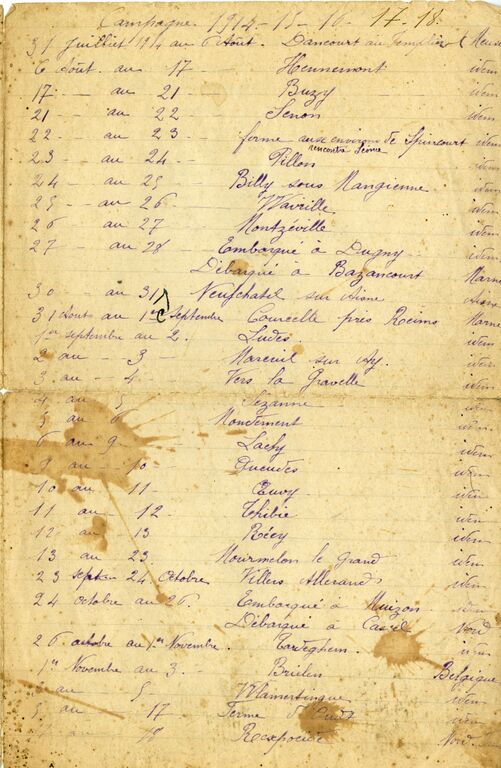 Campagne 1914-15-16-17-18.
31 Juillet 1914 au 6 Août. Dancourt au Templier (Meuse
6 Août au 17 Hennemont idem
17 au 21 Buzy idem
21 au 22 Senon idem
22 au 23 ferme aux environs de Spincourt idem
rencontré
23 au 24 Pillon idem
24 au 25 Billy sous Mangienne idem
25 au 26 Wavrille idem
26 au 27 Montzéville idem
27 au 28 Embarqué à Dugny idem
Débarqué à Bazancourt Marne
30 au 31 Neufchatel sur Aisne Aisne
31 Août au 1er Septembre Courcelle près Reims Marne
1er septembre au 2. Ludes. idem
2 au 3 Mareuil sur Ay. idem
3 au 4. Vers la Gravelle idem
4 au 5 Sézanne idem
5 au 6 Mondement idem
6 au 9 Lachy idem
9 au 10 idem
10 au 11 Euvy idem
11 au 12 Thibie idem
12 au 13 Récy idem
13 au 23 Mourmelon le Grand idem
23 sept au 24 Octobre Villers Allerand idem
24 octobre au 26. Embarqué à Muizon idem
Débarqué à Cassel Nord
26 octobre au 1er Novembre. idem
1er Novembre au 3. Brielen Belgique
au 5 Vlamertingue idem
5 au 17 Ferme idem
au 18 Rexpoëde Nord